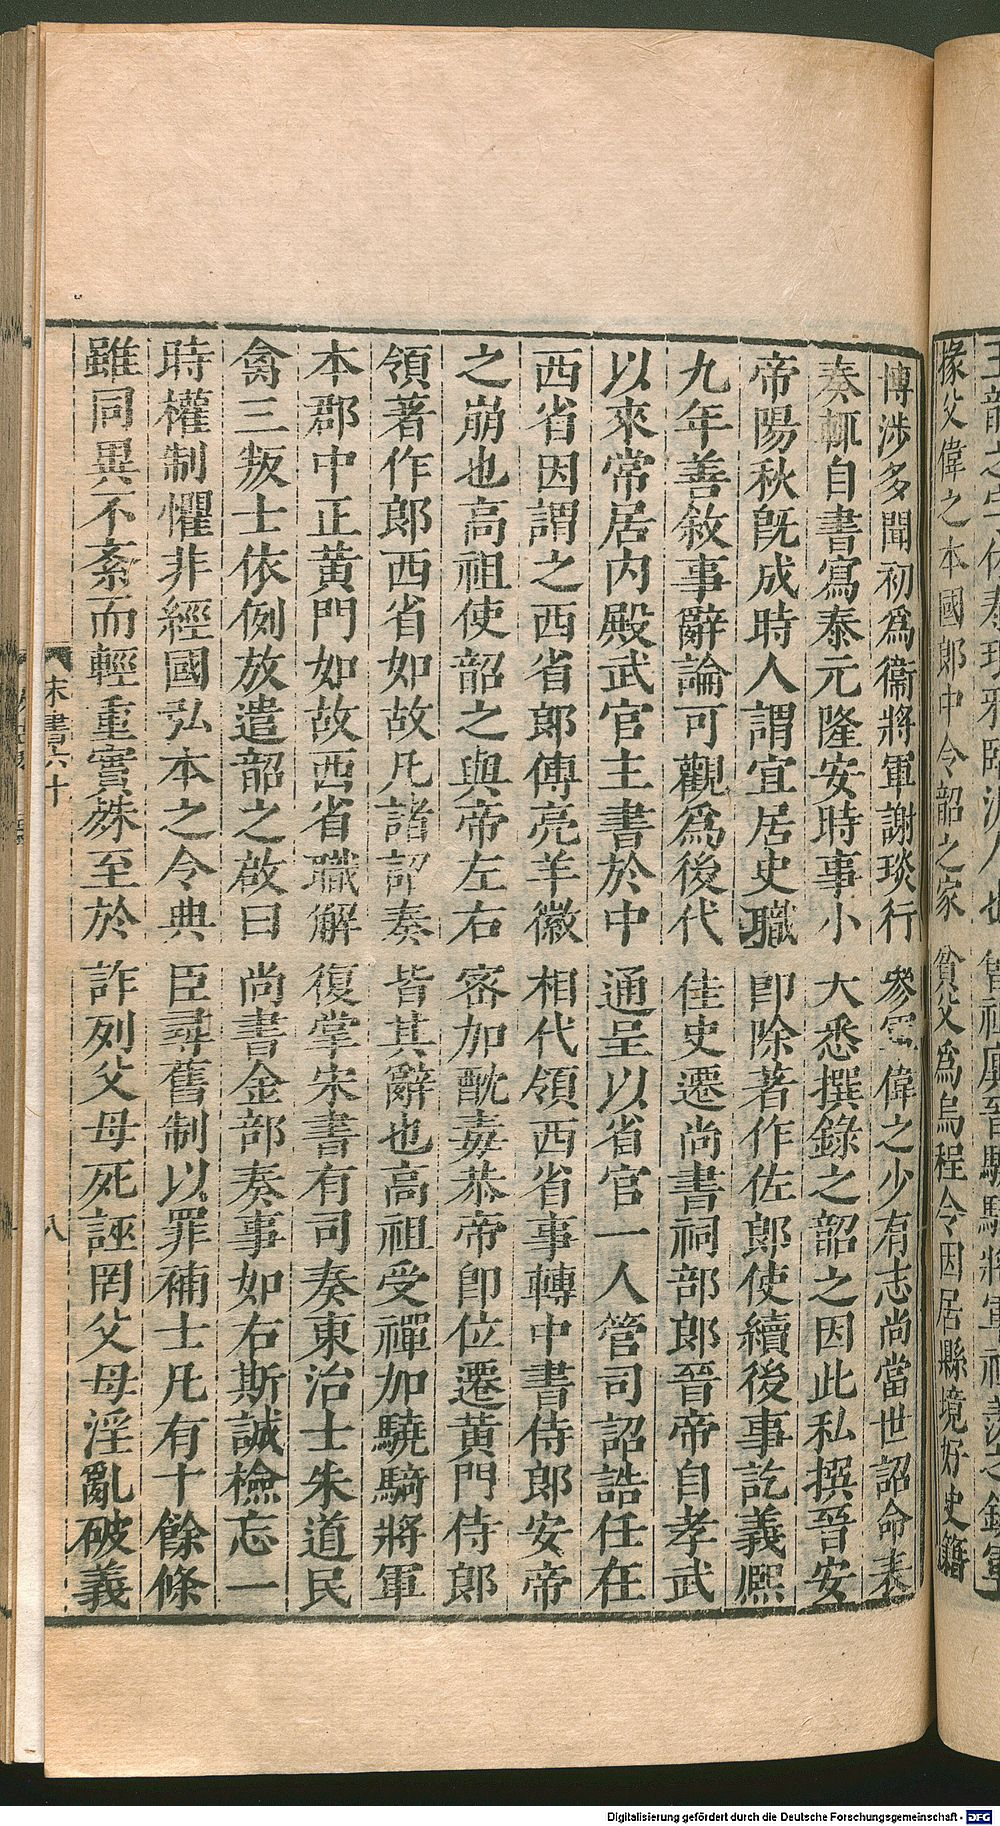 掾父偉之本國郎中令韶之家貧父爲烏程令因居縣境好史籍
博涉多聞初爲衞將軍謝琰行參軍偉之少有志尚當世詔命表
奏輒自書寫泰元隆安時事小大悉撰錄之韶之因此私撰晉安
帝陽秋旣成時人謂宜居史職卽除著作佐郎使續後事訖義熙
九年善敘事辭論可觀爲後代佳史遷尚書祠部郎晉帝自孝武
以來常居內殿武官主書於中通呈以省官一人管司詔誥任在
西省因謂之西省郎傅亮羊徽相代領西省事轉中書侍郎安帝
之崩也高祖使韶之與帝左右密加酖毒恭帝卽位遷黃門侍郎
領著作郎西省如故凡諸詔奏皆其辭也高祖受禪加驍騎將軍
本郡中正黃門如故西省職解復掌宋書有司奏東治士朱道民
禽三叛士依例放遣韶之啟曰尚書金部奏事如右斯誠檢忘一
時權制懼非經國弘本之令典臣尋舊制以罪補士凡有十餘條
雖同異不紊而輕重實殊至於詐列父母死誣罔父母淫亂破義
宋書六十
八
Digitalisierung gefördert durch die Deutsche Forschungsgemeinschaft - DFG